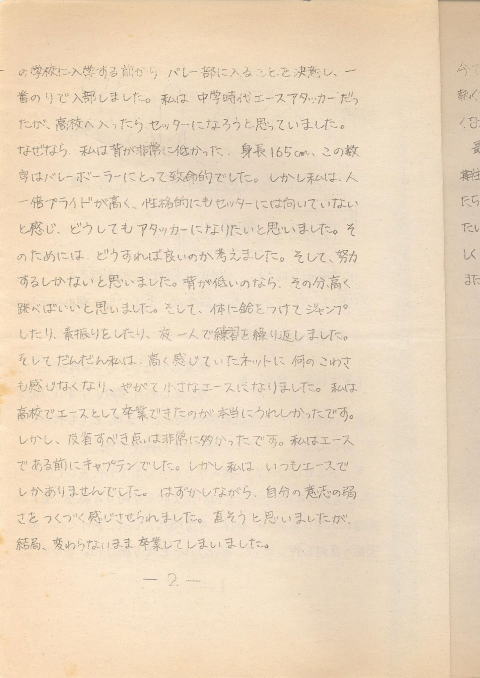 の学校に入学する前から バレー部に入ることを決意し、一
番のりで入部しました。私は 中学時代エースアタッカーだっ
たが、高校へ入ったら セッターになろうと思っていました。
なぜなら、私は背が非常に低かった。身長165cm、この数
字はバレーボーラーにとって致命的でした。しかし私は、人
一倍プライドが高く、性格的にもセッターには向いていない
と感じ、どうしても アタッカーになりたいと思いました。そ
のためには、どうすれば良いのか考えました。そして、努力
するしかないと思いました。背が低いのなら、その分、高く
跳べばいいと思いました。そして、体に鉛をつけて ジャンプ
したり、素振りをしたり、夜 一人で練習を繰り返しました。
そしてだんだん私は、高く感じていたネットに 何のこわさ
も感じなくなり、やがて小さなエースになりました。私は
高校でエースとして卒業できたのが本当にうれしかったです。
しかし、反省すべき点は非常に多かったです。私はエース
である前にキャプテンでした。しかし私は、いつもエースで
しかありませんでした。はずかしながら、自分の意志の弱
さをつくづく感じさせられました。直そうと思いましたが、
結局、変わらないまま卒業してしまいました。
— 2 —
たら
たい
しく
また